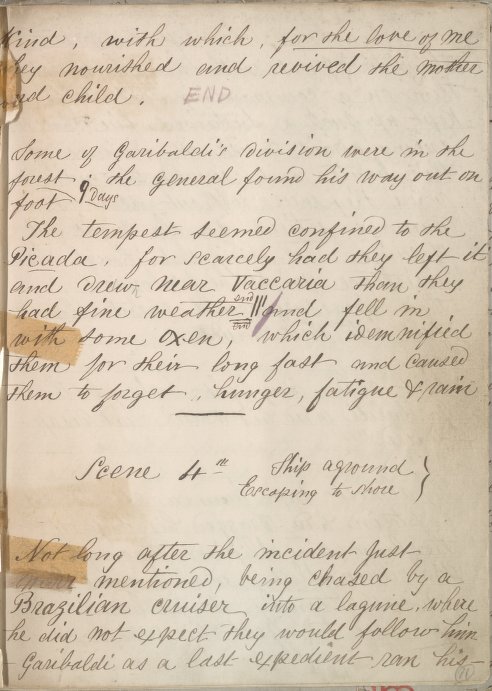 kind, with which, for the love of me
they nourished and revived the mother
and child. END
Some of Garibaldi's division were in the
forest 9 Days; the General found his way out on
foot
The tempest seemed confined to the
Picada, for scarcely had they left it
and drew near Vaccaria than they
had fine weather end and fell in
with some oxen, which idemnified
them for their long fast and caused
them to forget, hunger, fatigue & rain
Scene 4th Ship aground
Escaping to shore
Not long after the incident just
mentioned, being chased by a
Brazilian cruiser into a lagune, where
he did not expect they would follow him
- Garibaldi as a last expedient ran his -